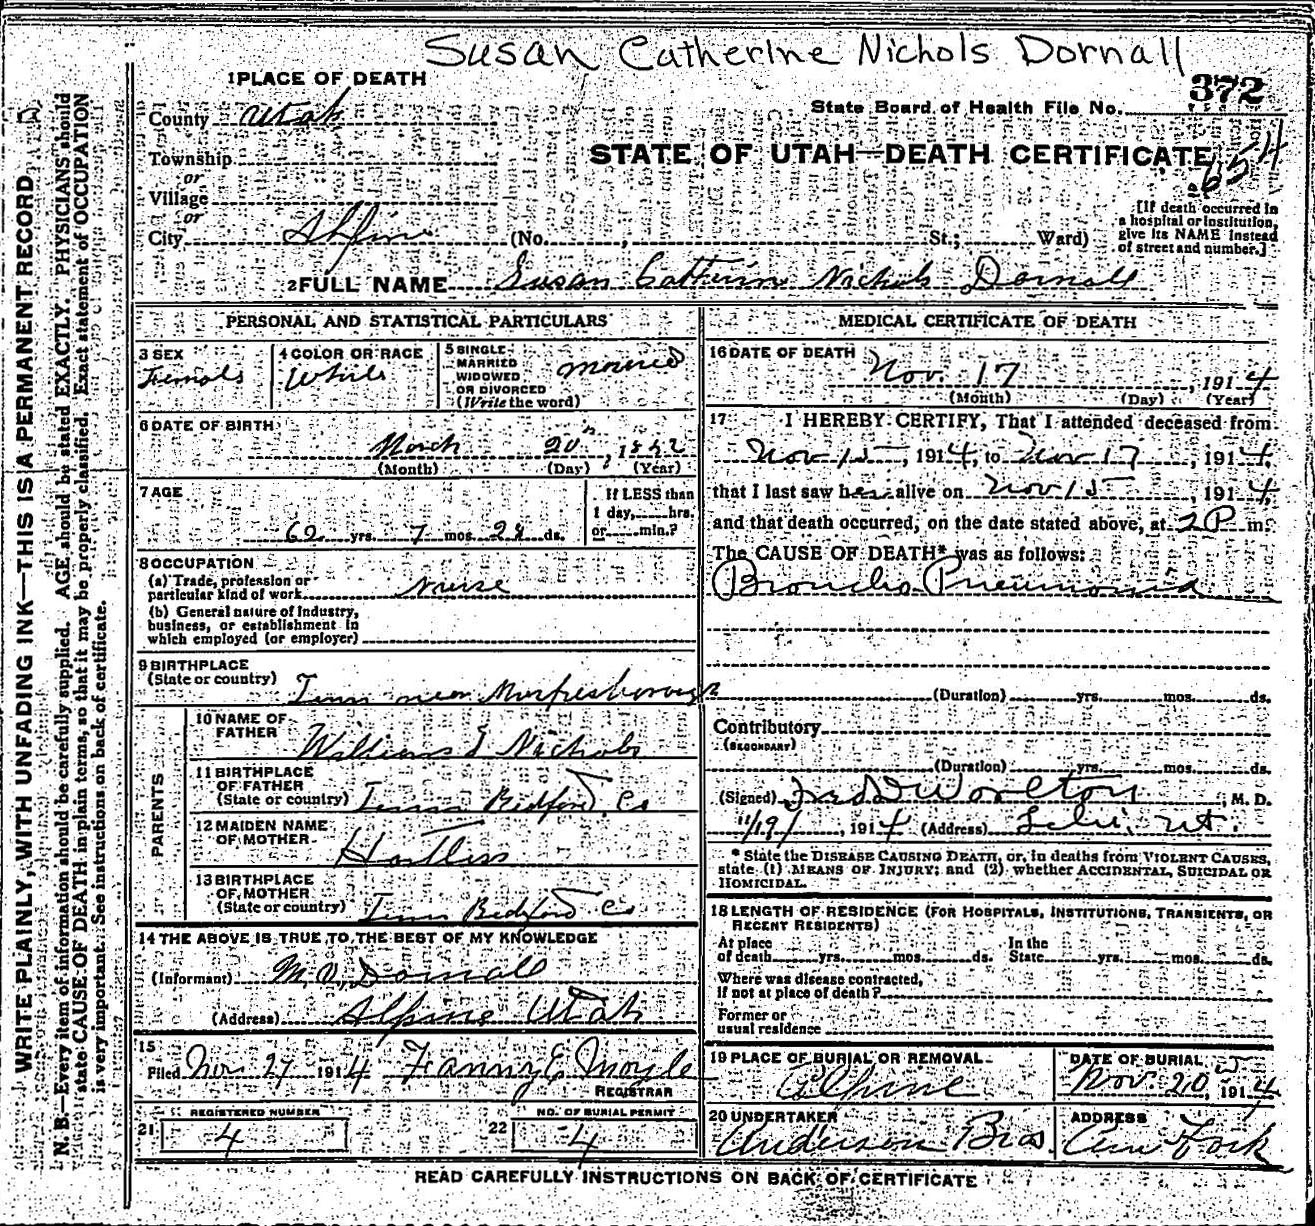 Susan Catherine Nichols Dornall
1 PLACE OF DEATH
372
State Board of Health File No.
County Utah
STATE OF UTAH—DEATH CERTIFICATE
654
Township
or
Village
or
City Alpine (No. , St.; Ward)
[If death occurred in
a hospital or institution,
give its NAME instead
of street and number.]
2 FULL NAME Susan Catherin Nichols Dornall
PERSONAL AND STATISTICAL PARTICULARS
3 SEX
Female
4 COLOR OR RACE
White
5 SINGLE
MARRIED
WIDOWED
OR DIVORCED
(Write the word)
married
6 DATE OF BIRTH
March 20th, 1852
(Month) (Day) (Year)
7 AGE
62 yrs. 7 mos. 28 ds.
If LESS than
1 day, hrs.
or min.?
8 OCCUPATION
(a) Trade, profession or
particular kind of work nurse
(b) General nature of Industry,
business, or establishment in
which employed (or employer)
9 BIRTHPLACE
(State or country) Tenn near Murfresborough
PARENTS
10 NAME OF
FATHER William J Nichols
11 BIRTHPLACE
OF FATHER
(State or country) Tenn Bedford Co
12 MAIDEN NAME
OF MOTHER Hartless
13 BIRTHPLACE
OF MOTHER
(State or country) Tenn Bedford Co
14 THE ABOVE IS TRUE TO THE BEST OF MY KNOWLEDGE
(Informant) M. O. Dornall
(Address) Alpine Utah
15
Filed Nov. 27 1914 Fanny E Moyle
REGISTRAR
REGISTERED NUMBER
21 4
NO. OF BURIAL PERMIT
22 4
MEDICAL CERTIFICATE OF DEATH
16 DATE OF DEATH
Nov. 17, 1914
(Month) (Day) (Year)
17 I HEREBY CERTIFY, That I attended deceased from
Nov 15, 1914, to Nov 17, 1914,
that I last saw her alive on Nov 15, 1914,
and that death occurred, on the date stated above, at 2 P m.
The CAUSE OF DEATH* was as follows:
Broncho Pneumonia
(Duration) yrs. mos. ds.
Contributory
(SECONDARY)
(Duration) yrs. mos. ds.
(Signed) Fred D Worlton, M. D.
11/19/, 1914 (Address) Lehi, Ut.
* State the DISEASE CAUSING DEATH, or, in deaths from VIOLENT CAUSES,
state (1) MEANS OF INJURY; and (2) whether ACCIDENTAL, SUICIDAL OR
HOMICIDAL.
18 LENGTH OF RESIDENCE (FOR HOSPITALS, INSTITUTIONS, TRANSIENTS, OR
RECENT RESIDENTS)
At place
of death yrs. mos. ds.
In the
State yrs. mos. ds.
Where was disease contracted,
if not at place of death?
Former or
usual residence
19 PLACE OF BURIAL OR REMOVAL
Alpine
DATE OF BURIAL
Nov. 20, 1914
20 UNDERTAKER
Anderson Bros
ADDRESS
Am Fork
READ CAREFULLY INSTRUCTIONS ON BACK OF CERTIFICATE
WRITE PLAINLY, WITH UNFADING INK—THIS IS A PERMANENT RECORD
N. B.—Every item of information should be carefully supplied. AGE should be stated EXACTLY. PHYSICIANS should
state CAUSE OF DEATH in plain terms, so that it may be properly classified. Exact statement of OCCUPATION
is very important. See instructions on back of certificate.